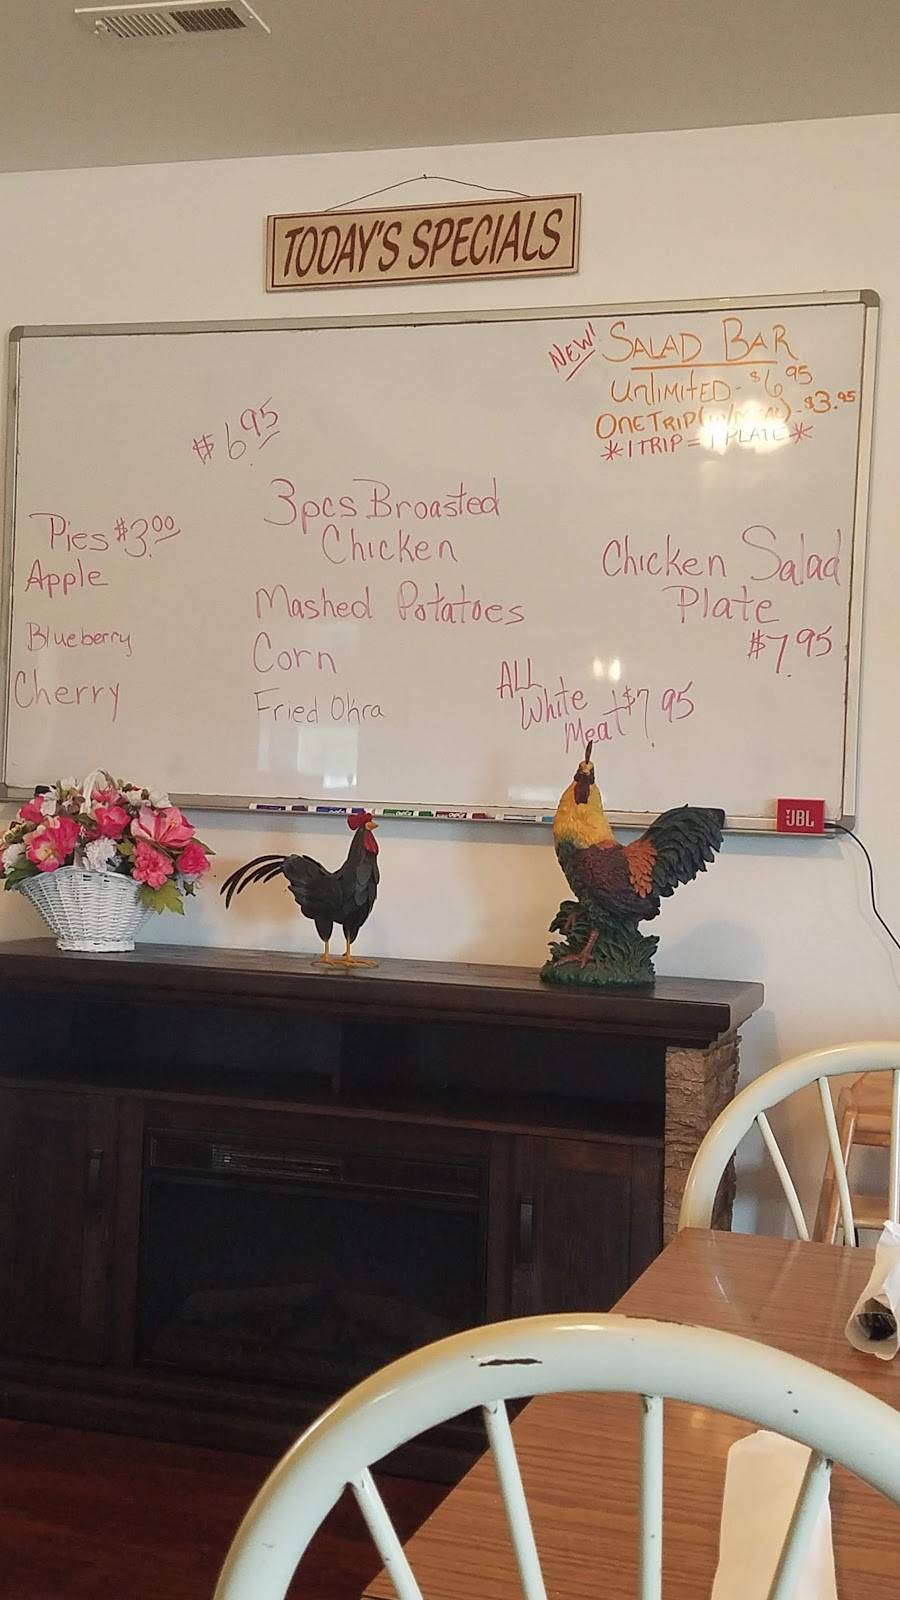 TODAY'S SPECIALS
NEW! SALAD BAR
UNLIMITED - $6.95
ONE TRIP (W/MEAL) - $3.95
*1 TRIP = 1 PLATE*
$6.95
Pies $3.00
Apple
Blueberry
Cherry
3pcs Broasted
Chicken
Mashed Potatoes
Corn
Fried Okra
ALL
White
Meat $7.95
Chicken Salad
Plate
$7.95
JBL